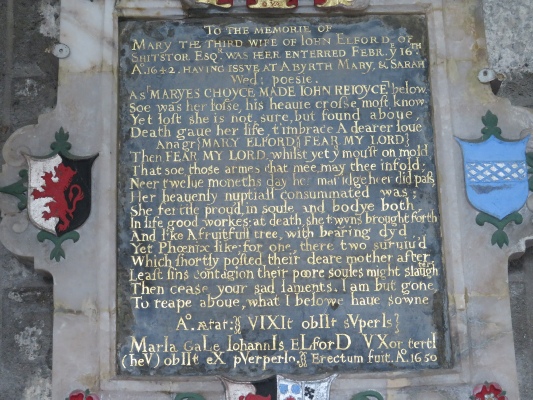 To the memorie of
Mary the third wife of Iohn Elford of
Shitstor Esqr. was heer enterred Febr. ye 16th
Ao. 1642. having issve at a byrth Mary, & Sarah
Wed: poesie.
As MARYES CHOYCE MADE IOHN REIOYCE below
Soe was her losse, his heauie crosse most know
Yet lost she is not sure, but found aboue
Death gaue her life, t'imbrace A dearer loue
Anagr: MARY ELFORD: FEAR MY LORD
Then FEAR MY LORD, whilst yet ye mou'st on mold
That soe those armes that mee may thee infold
Neer twelue moneths day her mariadge heer did pass
Her heauenly nuptiall consummated was
She fertile proud, in soule and bodye both
In life good workes, at death, she twyns brought forth
And like A fruitfull tree, with bearing dy'd
Yet Phœnix like, for one, there two suruiu'd
Which shortly posted their deare mother after
Least sins contagion their poore soules might slaughter
Then cease your sad laments. I am but gone
To reape aboue, what I belowe haue sowne
Ao. ætat: VIXIt obIIt sVperIs
MarIa GaLe IohannIs ELforD VXor tertI
(heV) obIIt eX pVerperIo. Erectum fuit. Ao. 1650